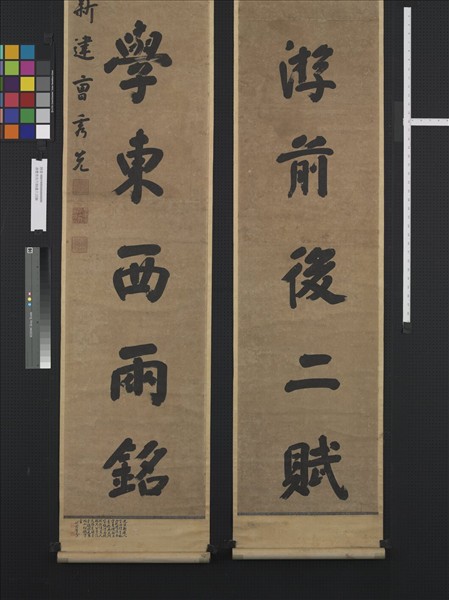 游前後二賦
學東西兩銘
新建曹秀先